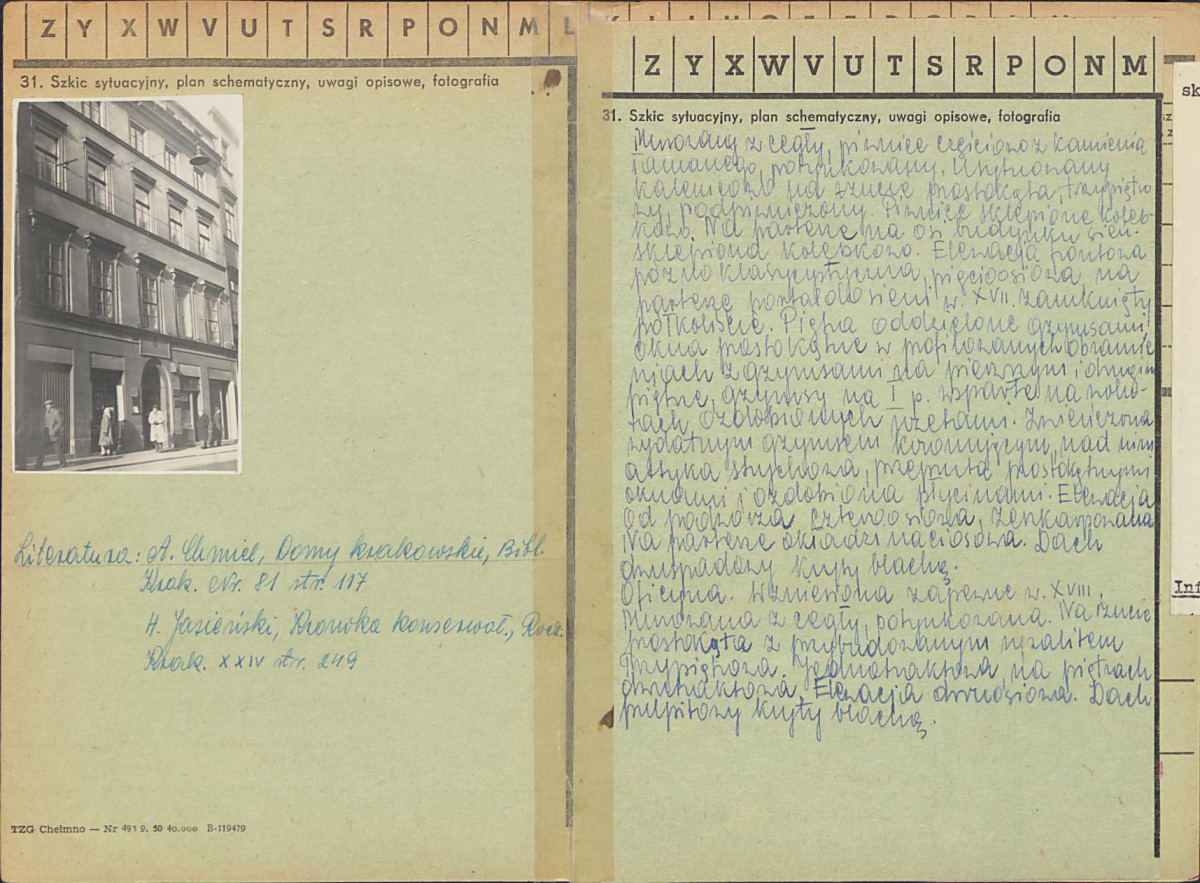 Z Y X W V U T S R P O N M L
31. Szkic sytuacyjny, plan schematyczny, uwagi opisowe, fotografia
Literatura: A. Chmiel, Domy krakowskie, Bibl.
Krak. Nr. 81 str. 117
H. Jasieński, Kronika konserwat., Rocz.
Krak. XXIV str. 249
TZG Chełmno — Nr 491 9. 50 40.000 B-119479
Z Y X W V U T S R P O N M
31. Szkic sytuacyjny, plan schematyczny, uwagi opisowe, fotografia
Murowany z cegły, piwnice częściowo z kamienia
łamanego, potynkowany. Usytuowany
kalenicowo na rzucie prostokąta, trzypiętro
wy, podpiwniczony. Piwnice sklepione koleb-
kowo. Na parterze na osi budynku sień
sklepiona kolebkowo. Elewacja frontowa
późno klasycystyczna, pięcioosiowa na
parterze portal do sieni w. XVII. zamknięty
półkoliście. Piętra oddzielone gzymsami,
okna prostokątne w profilowanych obramie
niach z gzymsami na pierwszym i drugim
piętrze, gzymsy na I p. wsparte na wolu-
tach, ozdobionych rozetami. Zwieńczona
wydatnym gzymsem koronującym, nad nim
attyka strychowa, przepruta prostokątnymi
oknami i ozdobiona płycinami. Elewacja
od podwórza czteroosiowa, zeskarpowana
Na parterze okładzina ciosowa. Dach
dwuspadowy kryty blachą.
Oficyna. Wzniesiona zapewne w. XVIII.
Murowana z cegły, potynkowana. Na rzucie
prostokąta z przybudowanym ryzalitem
Trzypiętrowa. Jednotraktowa, na piętrach
dwutraktowa. Elewacja dwuosiowa. Dach
pulpitowy kryty blachą.
sk
Inf